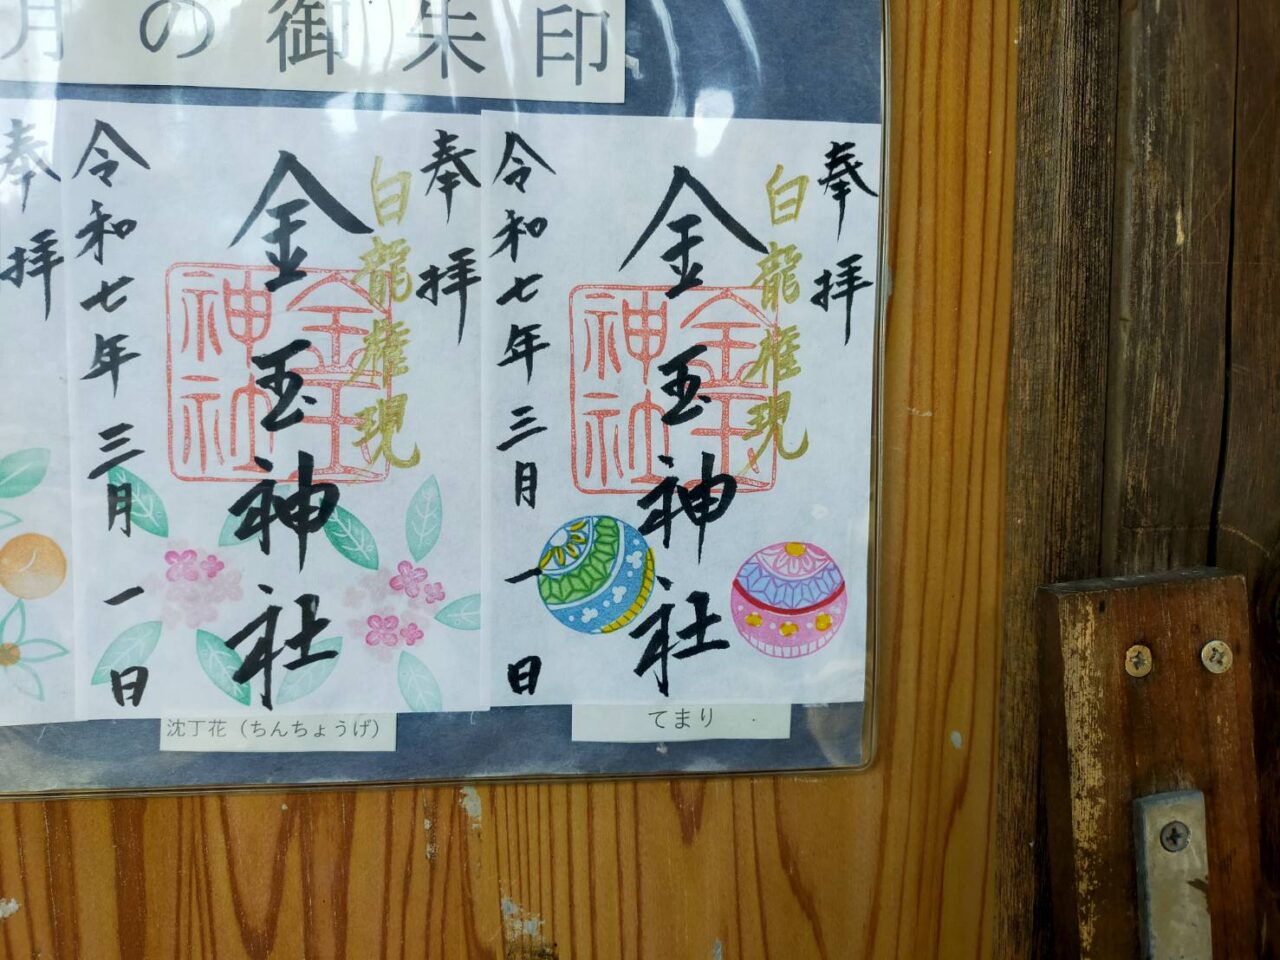 月の御朱印
奉拝
白龍権現
金玉神社
金玉神社
令和七年三月一日
てまり
奉拝
白龍権現
金玉神社
金玉神社
令和七年三月一日
沈丁花（ちんちょうげ）
奉拝